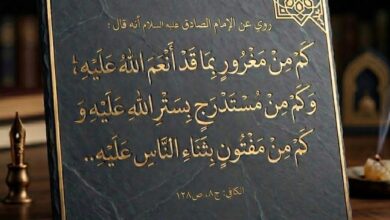 روي عن الإمام الصادق عليه السلام أنه قال :
كَمْ مِنْ مَغْرُورٍ بِمَا قَدْ أَنْعَمَ اللهُ عَلَيْهِ؛
وَكَمْ مِنْ مُسْتَدْرَجٍ بِسَتْرِ اللهِ عَلَيْهِ وَ
كَمْ مِنْ مَفْتُونٍ بِثَنَاءِ النَّاسِ عَلَيْهِ..
الكافي: ج٨، ص١٢٨